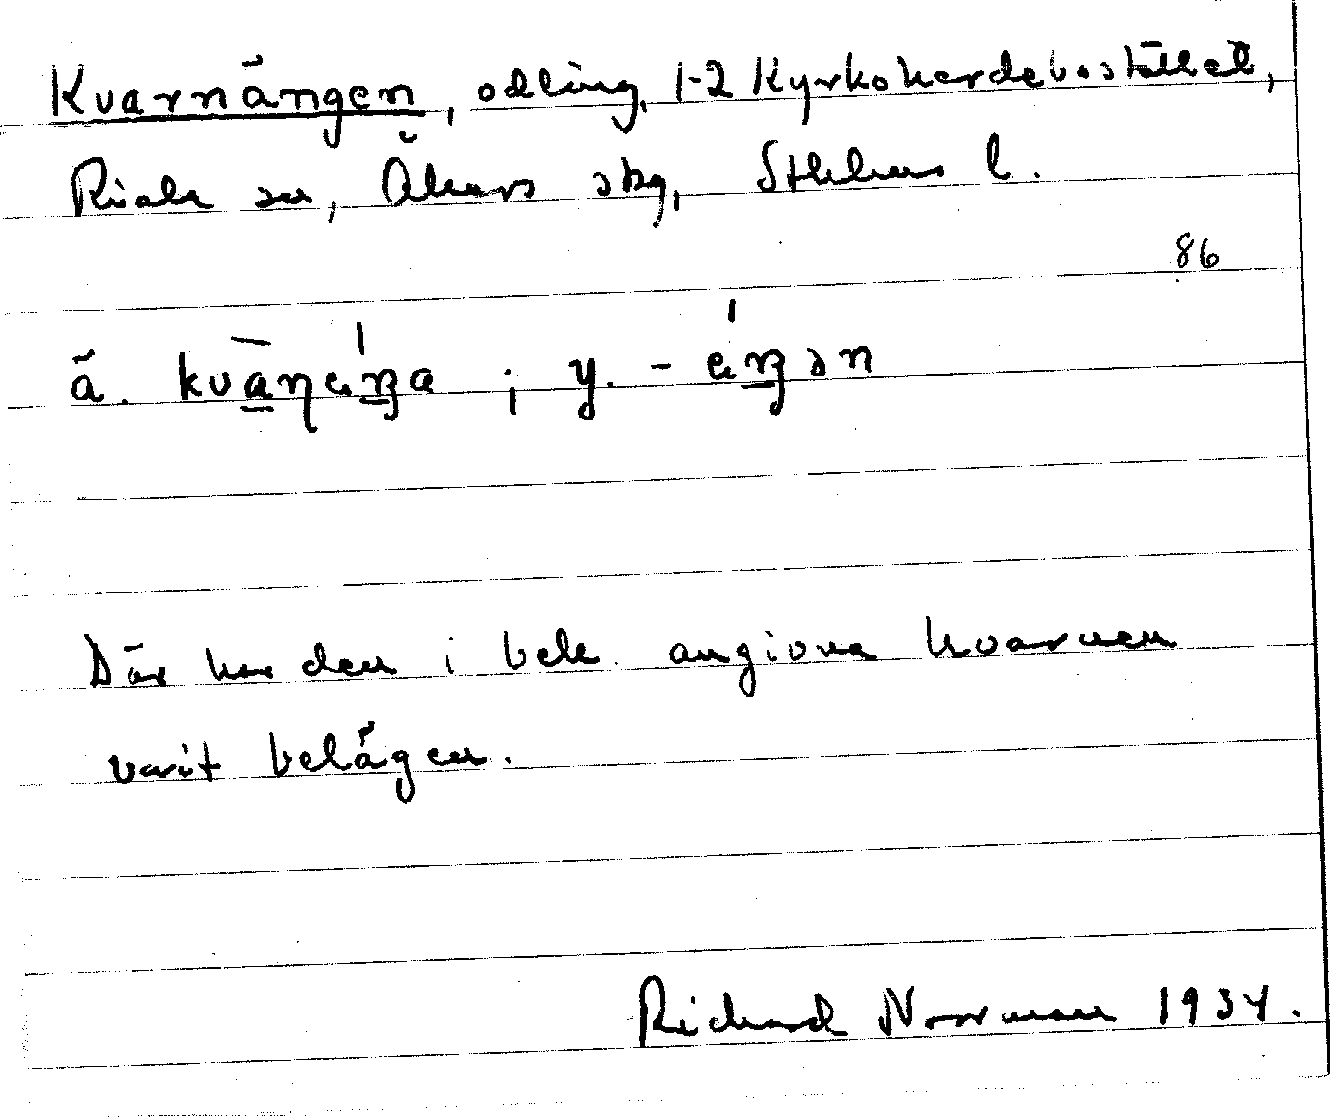 Kvarnängen, odling, 1-2 Kyrkoherdebostället,
Riala sn, Åkers skg, Sthlms l.
86
ä. kvàɳeŋa ; y. - éŋən
Där har den i bek. angivna kvarnen
varit belägen.
Richard Norrman 1934.